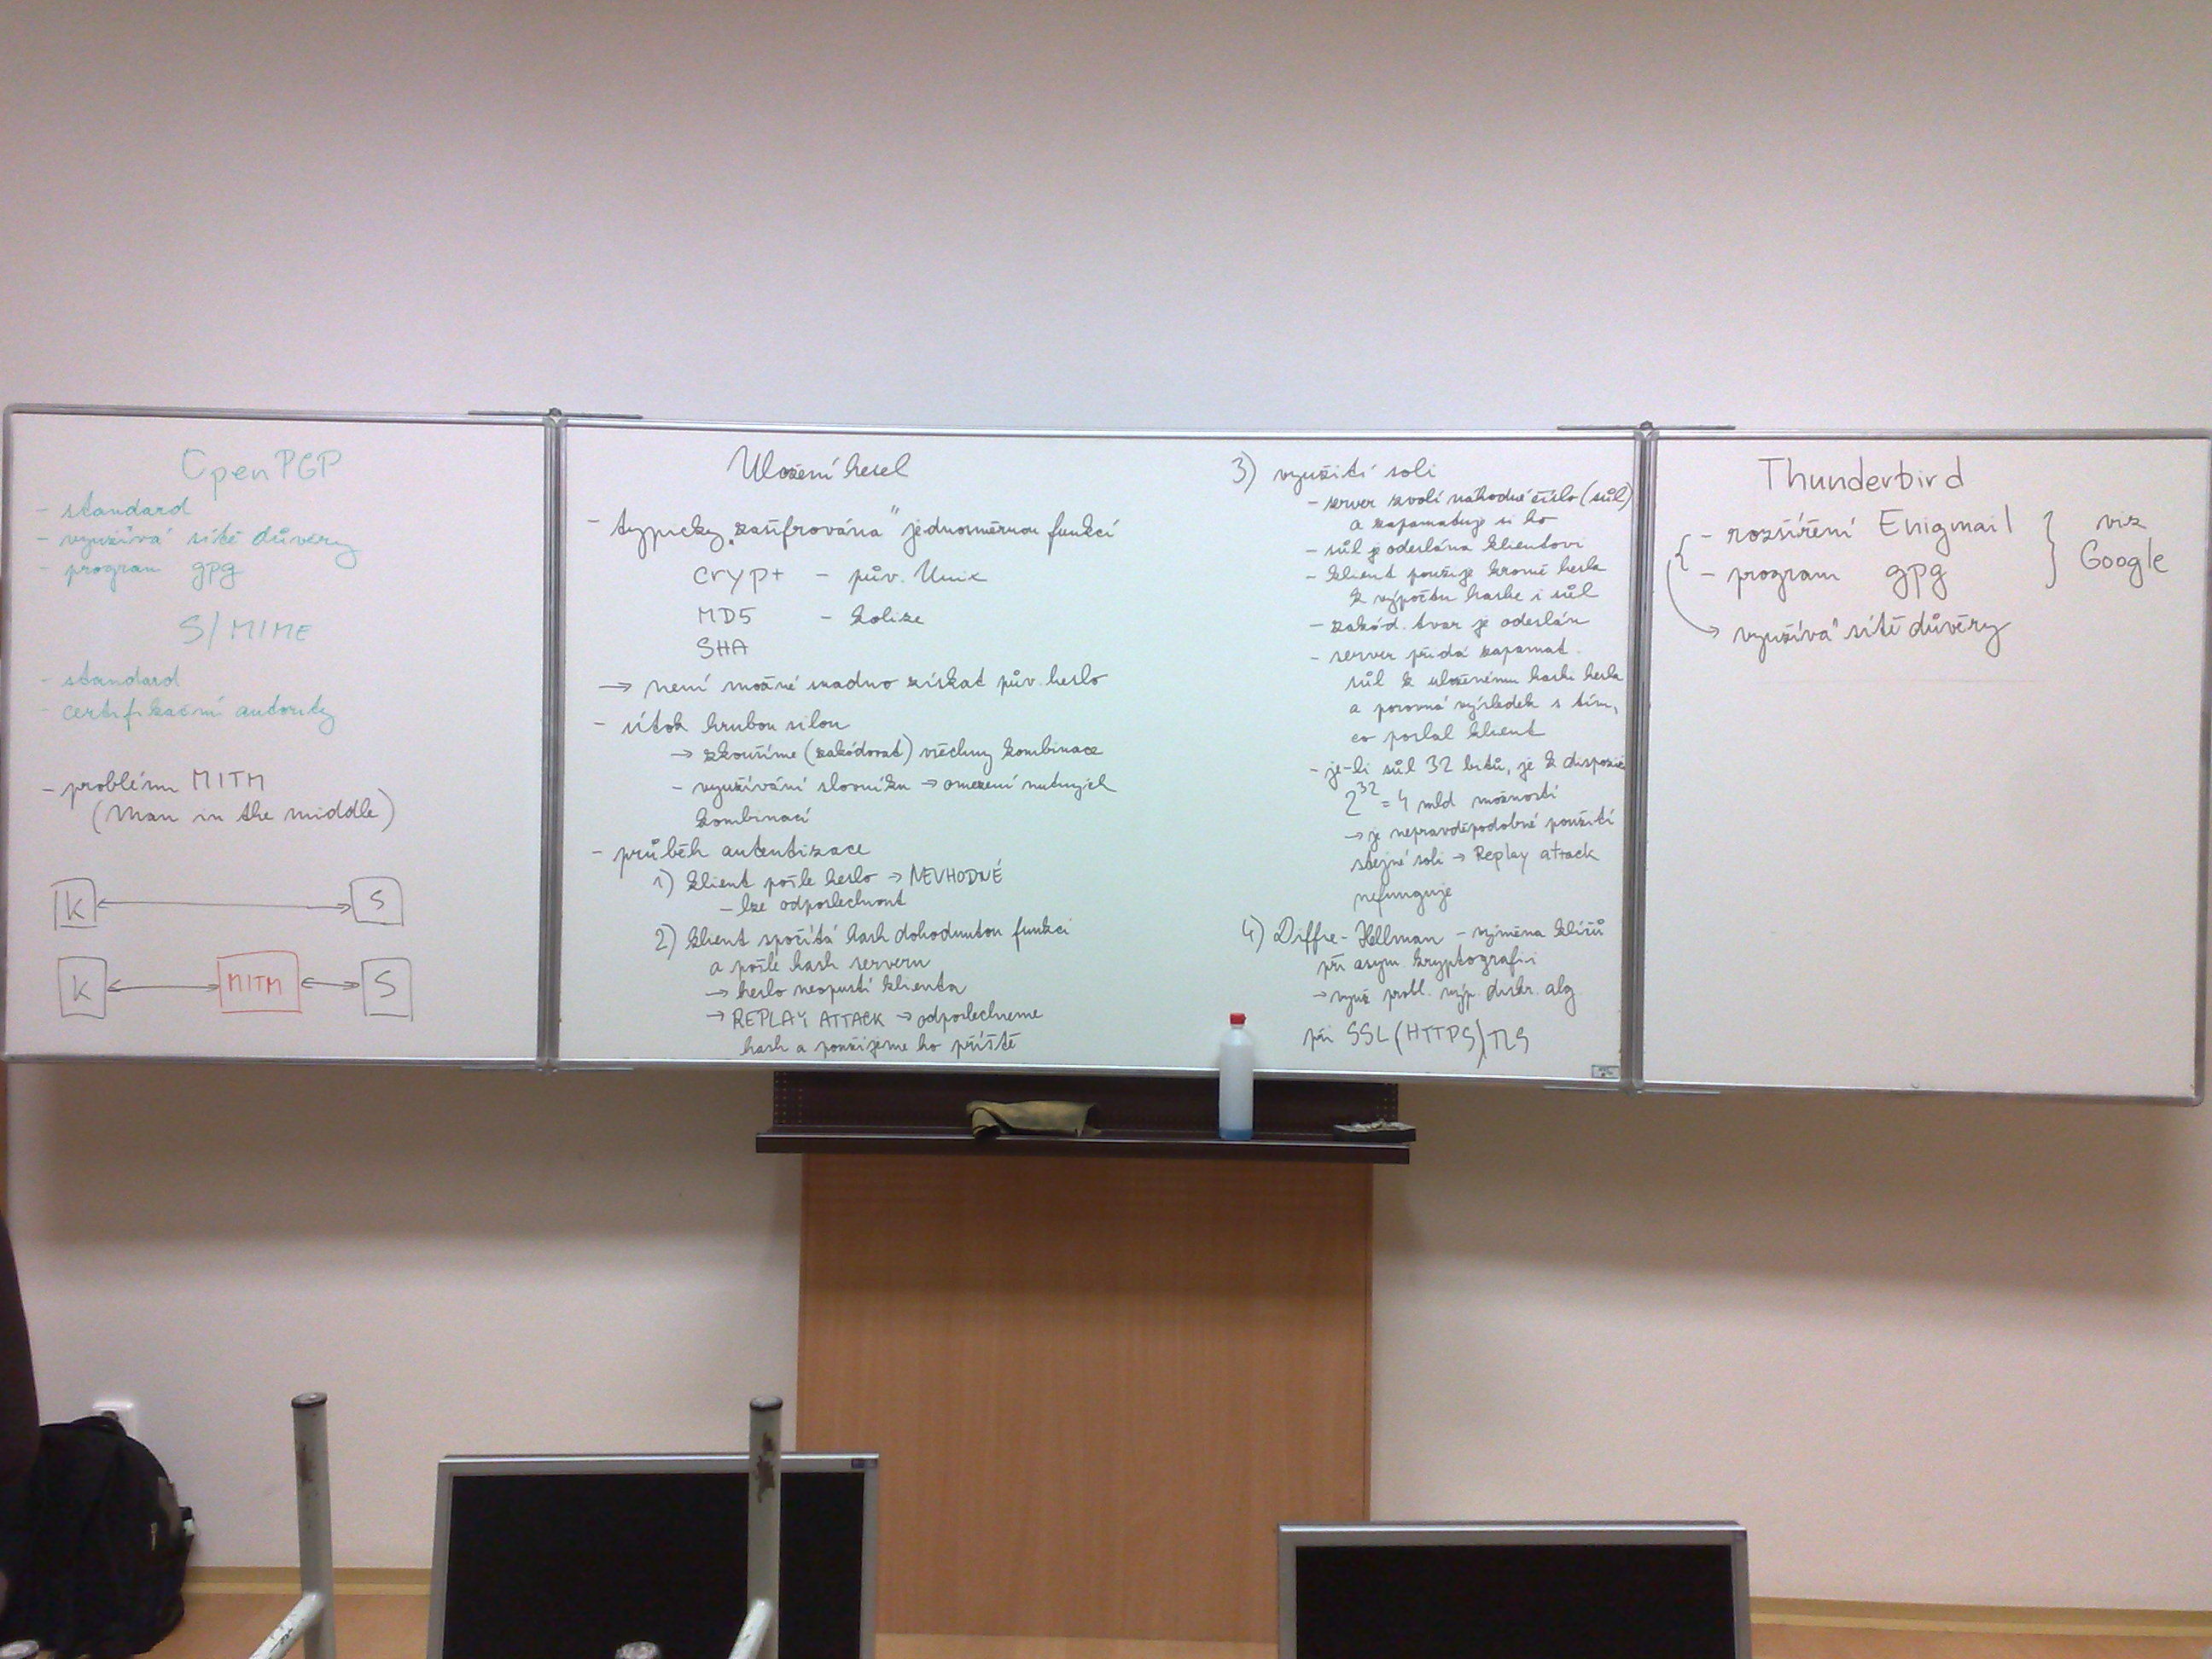 OpenPGP
- standard
- využívá sítě důvěry
- program gpg
S/MIME
- standard
- certifikační autority
- problém MITM
(Man in the middle)
K S
K MITM S
Uložení hesel
- typicky „zašifrována" jednosměrnou funkcí
crypt - pův. Unix
MD5 - kolize
SHA
→ není možné snadno získat pův. heslo
- útok hrubou silou
→ zkoušíme (zakódovat) všechny kombinace
- využívání slovníku → omezení nutných
kombinací
- průběh autentizace
1) klient pošle heslo → NEVHODNÉ
- lze odposlechnout
2) klient spočítá hash dohodnutou funkcí
a pošle hash serveru
→ heslo neopustí klienta
→ REPLAY ATTACK → odposlechneme
hash a použijeme ho příště
3) využití soli
- server zvolí náhodné číslo (sůl)
a zapamatuje si ho
- sůl je odeslána klientovi
- klient použije kromě hesla
k výpočtu hashe i sůl
- zakód. tvar je odeslán
- server přidá zapamat.
sůl k uloženému hashi hesla
a porovná výsledek s tím,
co poslal klient
- je-li sůl 32 bitů, je k dispozici
2^32 = 4 mld možností
→ je nepravděpodobné použití
stejné soli → Replay attack
nefunguje
4) Diffie-Hellman - výměna klíčů
při asym. kryptografii
→ využ. probl. výp. diskr. alg
při SSL (HTTPS) TLS
Thunderbird
- rozšíření Enigmail
- program gpg
viz
Google
→ využívá sítě důvěry